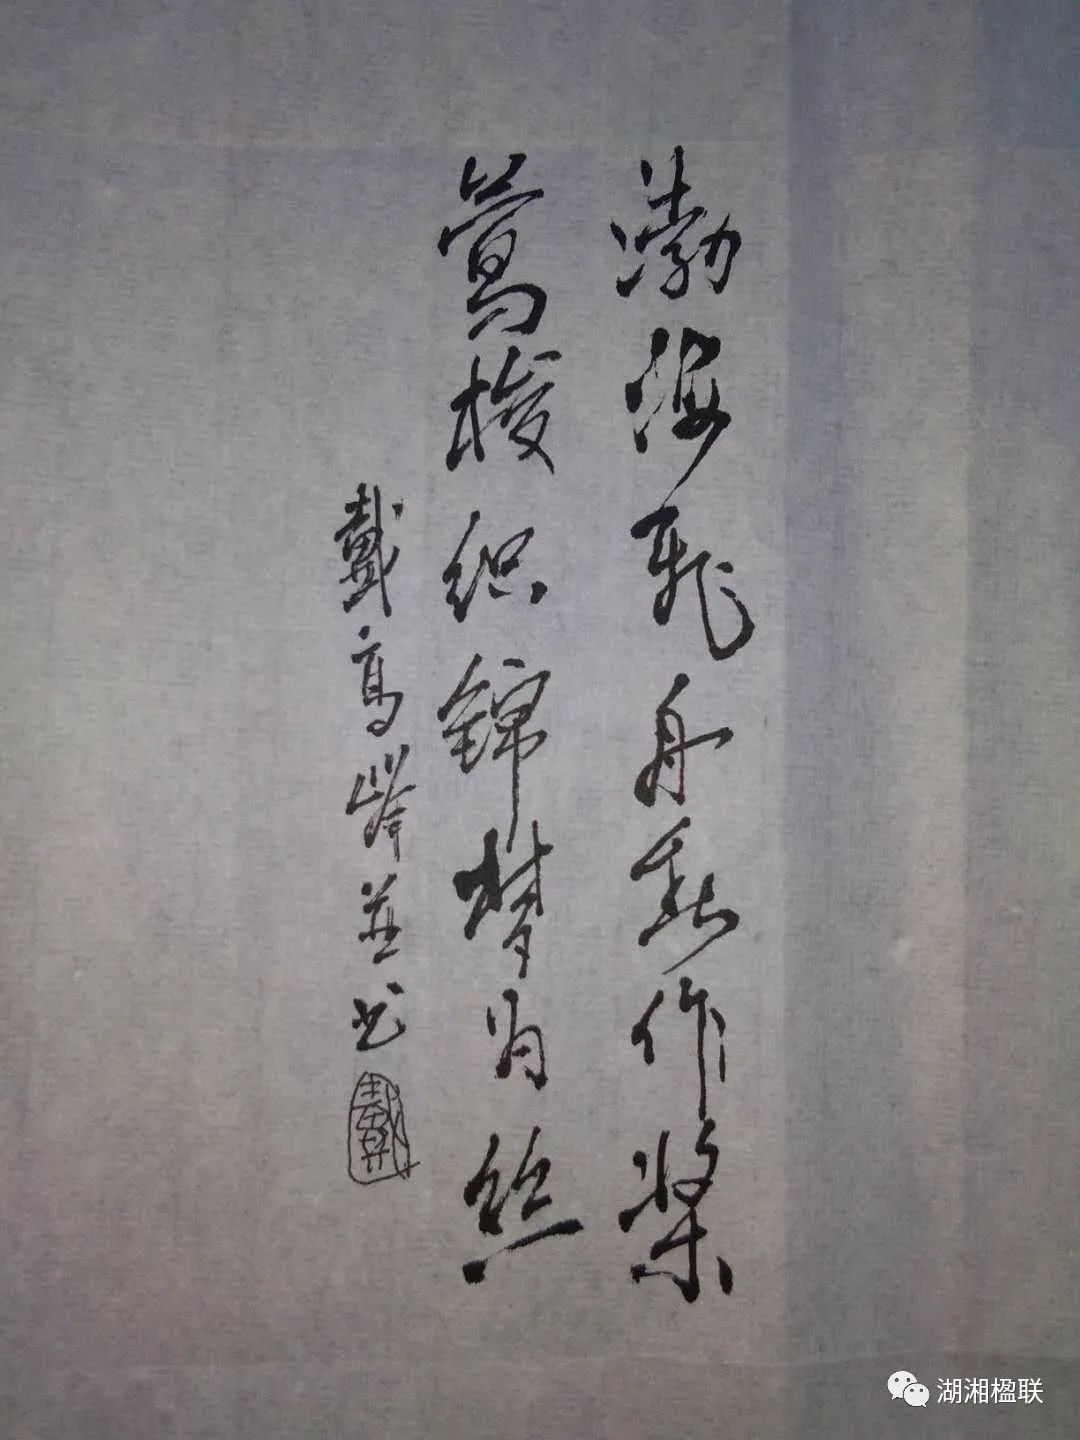 渤海飞舟作桨
莺梭织锦梦为丝
戴高峰並书
戴
湖湘楹联